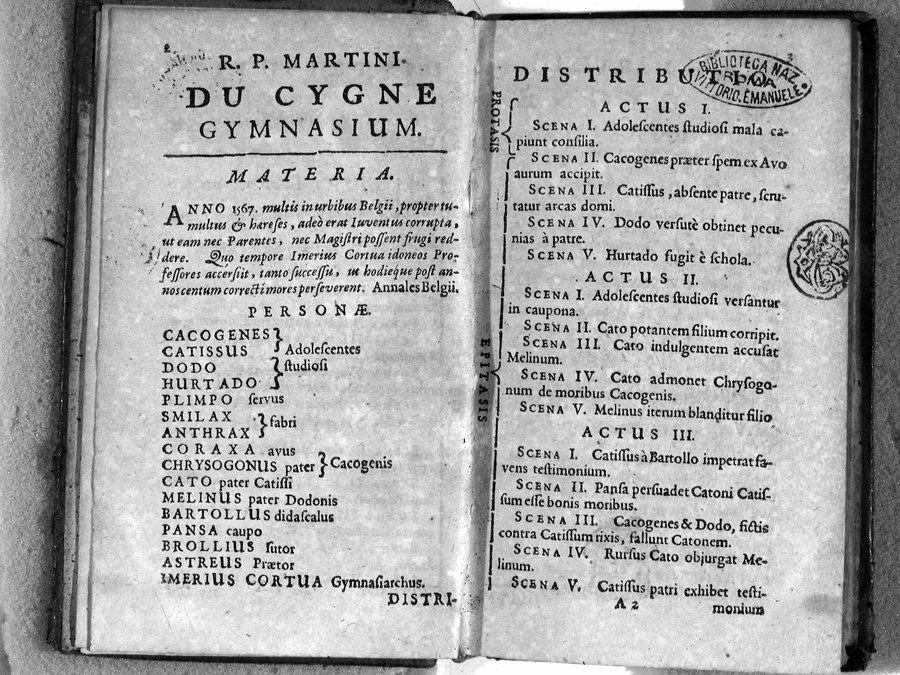 R. P. MARTINI.
DU CYGNE
GYMNASIUM.
MATERIA.
ANNO 1567. multis in urbibus Belgii, propter tu-
multus & hæreses, adeò erat Iuventus corrupta,
ut eam nec Parentes, nec Magiſtri poſſent frugi red-
dere. Quo tempore Imerius Cortua idoneos Pro-
feſſores accerſiit, tanto ſucceſſu, ut hodieque poſt an-
nos centum correcti mores perſeverent. Annales Belgii.
PERSONÆ.
CACOGENES
CATISSUS
DODO
HURTADO
Adoleſcentes
ſtudioſi
PLIMPO ſervus
SMILAX
ANTHRAX
fabri
CORAXA avus
CHRYSOGONUS pater
Cacogenis
CATO pater Catiſſi
MELINUS pater Dodonis
BARTOLLUS didaſcalus
PANSA caupo
BROLLIUS ſutor
ASTREUS Prætor
IMERIUS CORTUA Gymnaſiarchus.
DISTRI-
2
DISTRIBUTIO
BIBLIOTECA NAZ.
ROMA
VITTORIO. EMANUELE
PROTASIS
ACTUS I.
SCENA I. Adoleſcentes ſtudioſi mala ca-
piunt conſilia.
SCENA II. Cacogenes præter ſpem ex Avo
aurum accipit.
SCENA III. Catiſſus, abſente patre, ſcru-
tatur arcas domi.
SCENA IV. Dodo verſutè obtinet pecu-
nias à patre.
SCENA V. Hurtado fugit è ſchola.
EPITASIS
ACTUS II.
SCENA I. Adoleſcentes ſtudioſi verſantur
in caupona.
SCENA II. Cato potantem filium corripit.
SCENA III. Cato indulgentem accuſat
Melinum.
SCENA IV. Cato admonet Chryſogo-
num de moribus Cacogenis.
SCENA V. Melinus iterum blanditur filio
ACTUS III.
SCENA I. Catiſſus à Bartollo impetrat fa-
vens teſtimonium.
SCENA II. Panſa perſuadet Catoni Catiſ-
ſum eſſe bonis moribus.
SCENA III. Cacogenes & Dodo, fictis
contra Catiſſum rixis, fallunt Catonem.
SCENA IV. Rurſus Cato objurgat Me-
linum.
SCENA V. Catiſſus patri exhibet teſti-
A 2
monium